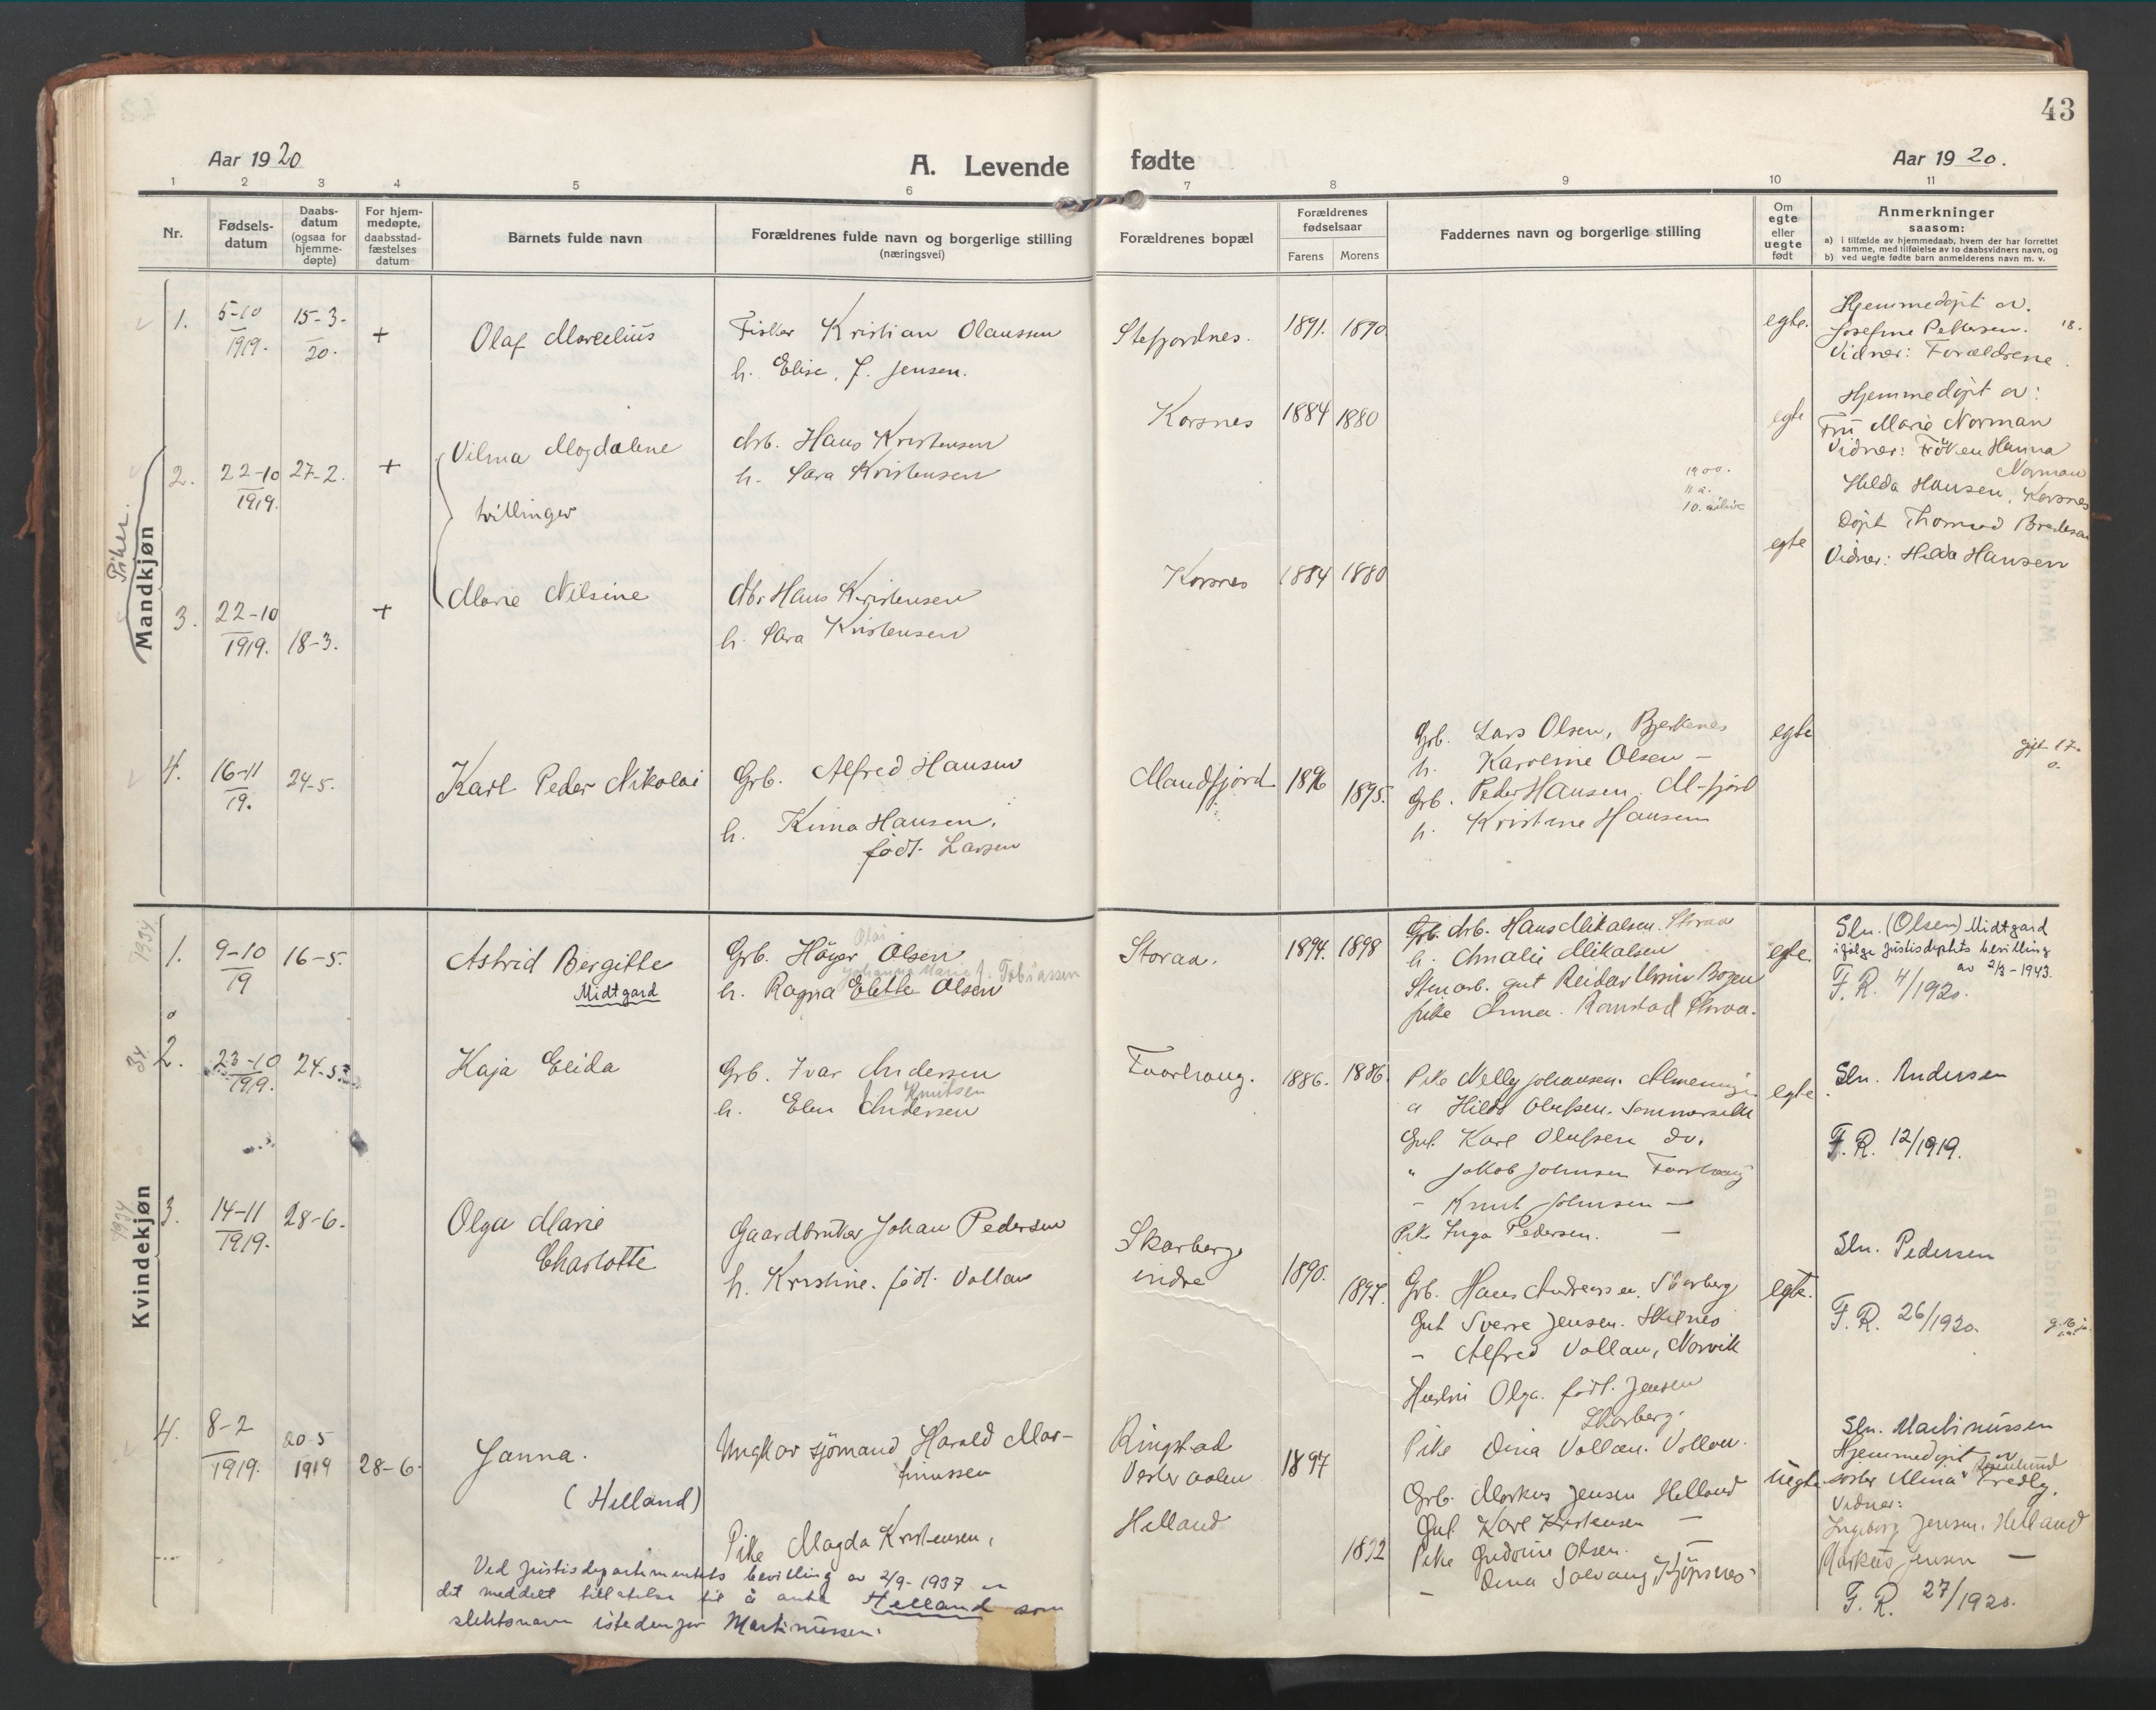 43
Aar 1920
A. Levende fødte
Aar 1920.
1 2 3 4 5 6 7 8 9 10 11
Nr.
Fødsels-
datum
Daabs-
datum
(ogsaa for
hjemme-
døpte)
For hjem-
medøpte,
daabsstad-
fæstelses
datum
Barnets fulde navn
Forældrenes fulde navn og borgerlige stilling
(næringsvei)
Forældrenes bopæl
Forældrenes
fødselsaar
Farens Morens
Faddernes navn og borgerlige stilling
Om
egte
eller
uegte
født
Anmerkninger
saasom:
a) i tilfælde av hjemmedaab, hvem der har forrettet
samme, med tilføielse av to daabsvidners navn, og
b) ved uegte fødte barn anmelderens navn m. v.
Mandkjøn
Piker.
1.
5-10
1919.
15-3-
20.
+
Olaf Marcelius
Fisker Kristian Olaussen
h. Elise. J. Jensen.
Stefjordnes.
1891. 1890
egte.
Hjemmedøpt av.
Josefine Pettersen. 18.
Vidner: Forældrene.
2.
22-10
1919.
27-2.
+
Vilma Magdalene
tvillinger
Arb. Hans Kristensen
h. Sara Kristensen
Korsnes
1884 1880
1900.
egte
Hjemmedøpt av:
Fru Marie Norman
Vidner: Frøken Hanna
Norman
Hilda Hansen, Korsnes
3.
22-10
1919.
18-3.
+
Marie Nilsine
Arb. Hans Kristensen
h. Sara Kristensen
Korsnes
1884 1880
egte
Døpt Thomas
Vidner: Hilda Hansen
4.
16-11
19.
24-5.
Karl Peder Nikolai
Grb. Alfred Hansen
h. Kima Hansen,
født. Larsen
Mandfjord
1896 1895.
Grb. Lars Olsen, Bjerkenes
h. Karoline Olsen -
Grb. Peder Hansen. M-fjord
h. Kristine Hansen
egte
gift 17.
Kvindekjøn
1934
1.
9-10
19
16-5.
Astrid Bergitte
Midtgard
Olai
Grb. Höger Olsen
Johanna Marie f. Tobiassen
h. Ragna Elette Olsen
Storaa.
1894. 1898
Grb. Arb. Hans Mikalsen. Storaa
h. Amalie Mikalsen
Stenarb. gut Reidar Bogen
Pike Anna. Ramstad Storaa.
egte.
Sln. (Olsen) Midtgard
ifølge Justisdeptets bevilling
av 2/3-1943.
F. R. 4/1920.
34
2.
23-10
1919.
24-5.
Kaja Elida
Grb. Ivar Andersen
Knutsen
h. Elen Andersen
1886. 1886.
Pike Nelly Johansen.
" Hilda Olufsen.
Gut. Karl Olufsen do.
" Jakob Johnsen
- Knut Johnsen -
Pike Inga Pedersen. -
egte
Sln. Andersen
F. R. 12/1919.
1934
3.
14-11
1919.
28-6.
Olga Marie
Charlotte
Gaardbruker Johan Pedersen
h. Kristine. født. Vollan
Skarberg
indre
1890. 1897.
Grb. Hans Andreassen, Skarberg
Gut Sverre Jensen.
- Alfred Vollan, Narvik
Hustru Olga. født. Jensen
Skarberg.
Pike Dina Vollan. Vollan.
egte.
Sln. Pedersen
F. R. 26/1920.
4.
8-2
1919.
20-5
1919
28-6.
Janna.
(Helland)
Ungkar sjømand Harald Mar-
tinussen
Pike Magda Kristensen,
Ringstad
Vesteraalen
Helland
1897
1892
Grb. Markus Jensen Helland
Gut. Karl Kristensen -
Pike Gudrun Olsen. -
- Dina Solvang, Kjöpsnes
uegte
Sln. Martinussen
Hjemmedøpt av
søster Ulrica Fredly.
Rosenlund
Vidner:
Ingeborg Jensen. Helland
Markus Jensen -
F. R. 27/1920.
Ved Justisdepartementets bevilling av 2/9-1937 er
det meddelt tillatelse til å anta Helland som
slektsnavn istedenfor Martinussen.